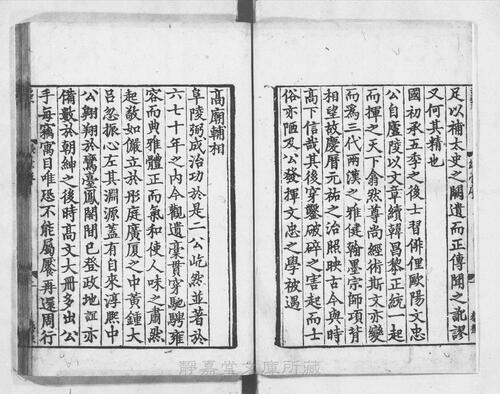 足以補太史之闕遺而正傳聞之訛謬
又何其精也
國初承五季之後士習俳俚歐陽文忠
公自廬陵以文章續韓昌黎正統一起
而揮之天下翕然尊尚經術斯文亦變
而爲三代兩漢之雅健翰墨宗師項背
相望故慶曆元祐之治照映古今與時
高下信哉其後穿鑿破碎之害起而士
俗亦陋及公發揮文忠之學被遇
高廟輔相
阜陵弼成治功於是二公屹然並著於
六七十年之內今觀遺稾貫穿馳騁雍
容而典雅體正而氣和使人味之肅然
起敬如儼立於彤庭廣厦之中黃鍾大
呂忽振心左其淵源蓋有自來淳熙中
公翱翔於鸞臺鳳閣間已登政地誼亦
備數於朝紳之後時高文大冊多出公
手每竊寓目唯恐不能屬饜再還周行
靜嘉堂文庫所藏